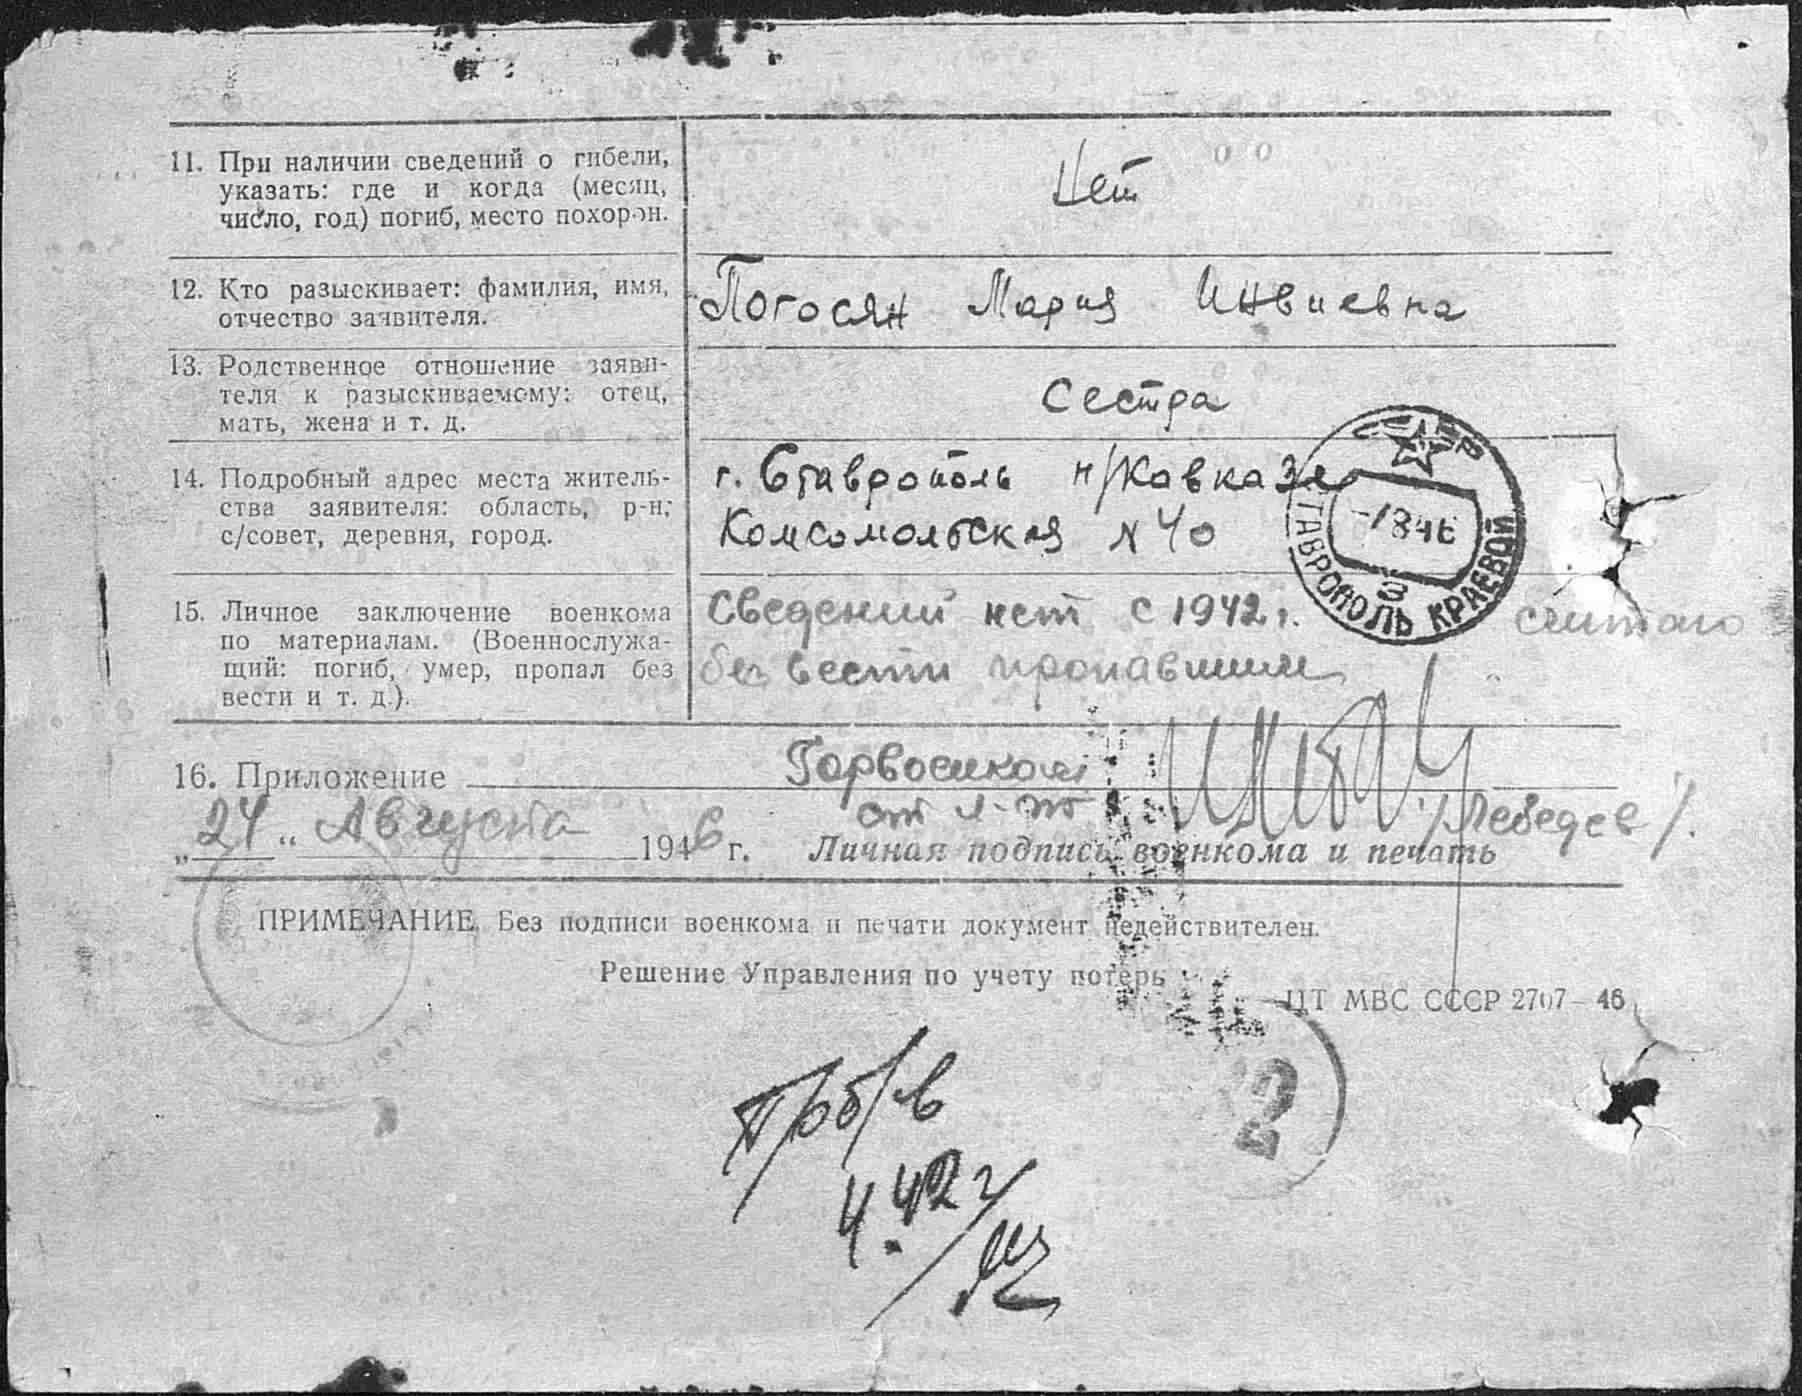 11. При наличии сведений о гибели,
указать: где и когда (месяц,
число, год) погиб, место похорон.
Нет
12. Кто разыскивает: фамилия, имя,
отчество заявителя.
Погосян Мария Инвиевна
13. Родственное отношение заяви-
теля к разыскиваемому: отец,
мать, жена и т. д.
Сестра
14. Подробный адрес места житель-
ства заявителя: область, р-н,
с/совет, деревня, город.
г. Ставрополь н/Кавказе
Комсомольская N 40
СССР
-1 8 46
СТАВРОПОЛЬ КРАЕВОЙ
15. Личное заключение военкома
по материалам. (Военнослужа-
щий: погиб, умер, пропал без
вести и т. д.).
Сведений нет с 1942 г. считаю
без вести пропавшим
16. Приложение
Горвоенком
ст. л-т /Лебедев/.
„24" Августа 1946 г. Личная подпись военкома и печать
ПРИМЕЧАНИЕ. Без подписи военкома и печати документ недействителен.
Решение Управления по учету потерь
ЦТ МВС СССР 2707-46
2
Пр/б/в
4.42 г